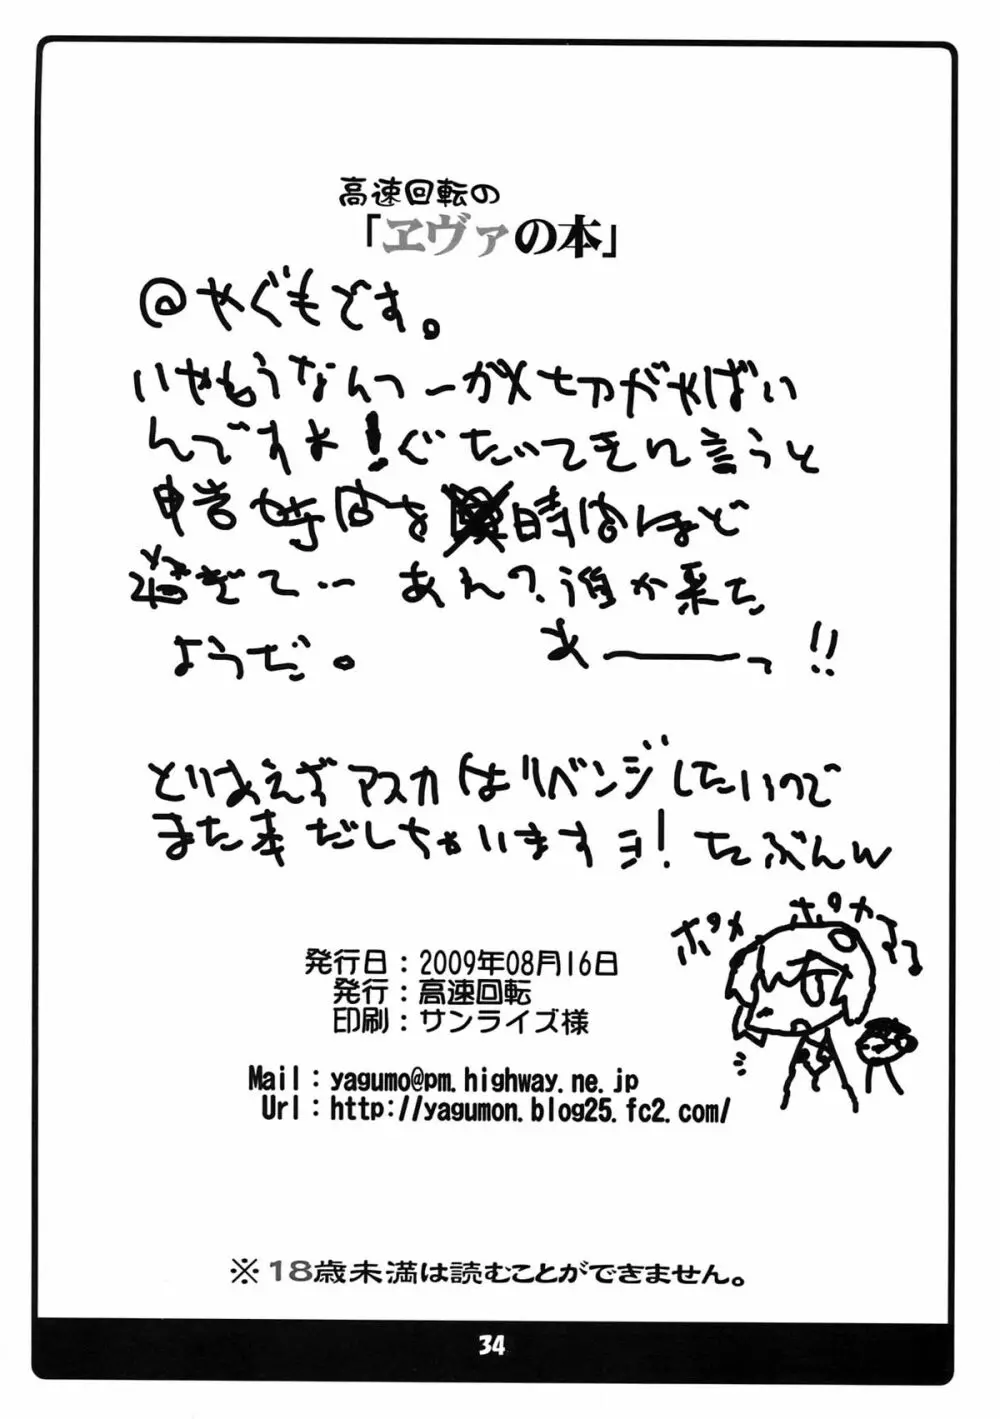 高速回転の
「ヱヴァの本」
@やぐもです。
いやもうなんつーか〆切がやばい
んですよ!ぐたいてきに言うと
申告時間を時間ほど
過ぎて… あれ?誰か来た
ようだ。 あ――っ!!
とりあえずアスカはリベンジしたいので
また本だしちゃいますヨ!たぶんw
ポカ ポカ
発行日：2009年08月16日
発行：高速回転
印刷：サンライズ様
Mail：yagumo@pm.highway.ne.jp
Url：http://yagumon.blog25.fc2.com/
※18歳未満は読むことができません。
34